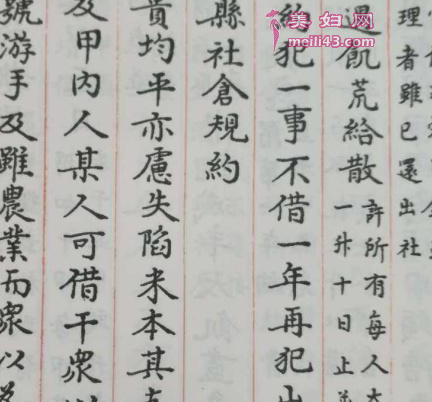 美妇网
meili43.com
理者雖已還出社
遇飢荒給散
許所有每人大
一升十日止並
約犯一事不借一年再犯出
縣社倉規約
貴均平亦慮失陷米本其
及甲内人某人可借于衆以
號游手及雖農業而衆以為